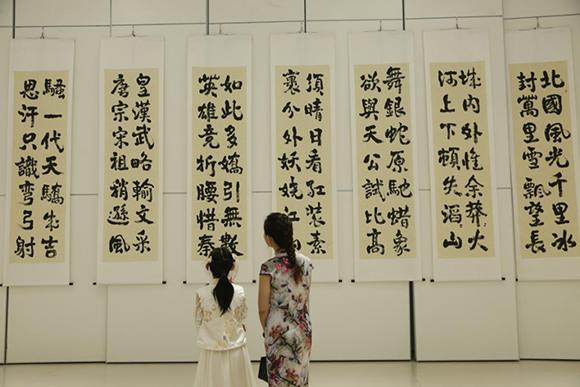 北國風光千里冰
封萬里雪飄望長
城内外惟余莽〻大
河上下頓失滔〻山
舞銀蛇原馳蜡象
欲與天公試比高
須晴日看紅裝素
裹分外妖嬈江
如此多嬌引無數
英雄競折腰惜秦
皇漢武略輸文采
唐宗宋祖稍遜風
騷一代天驕成吉
思汗只識彎弓射